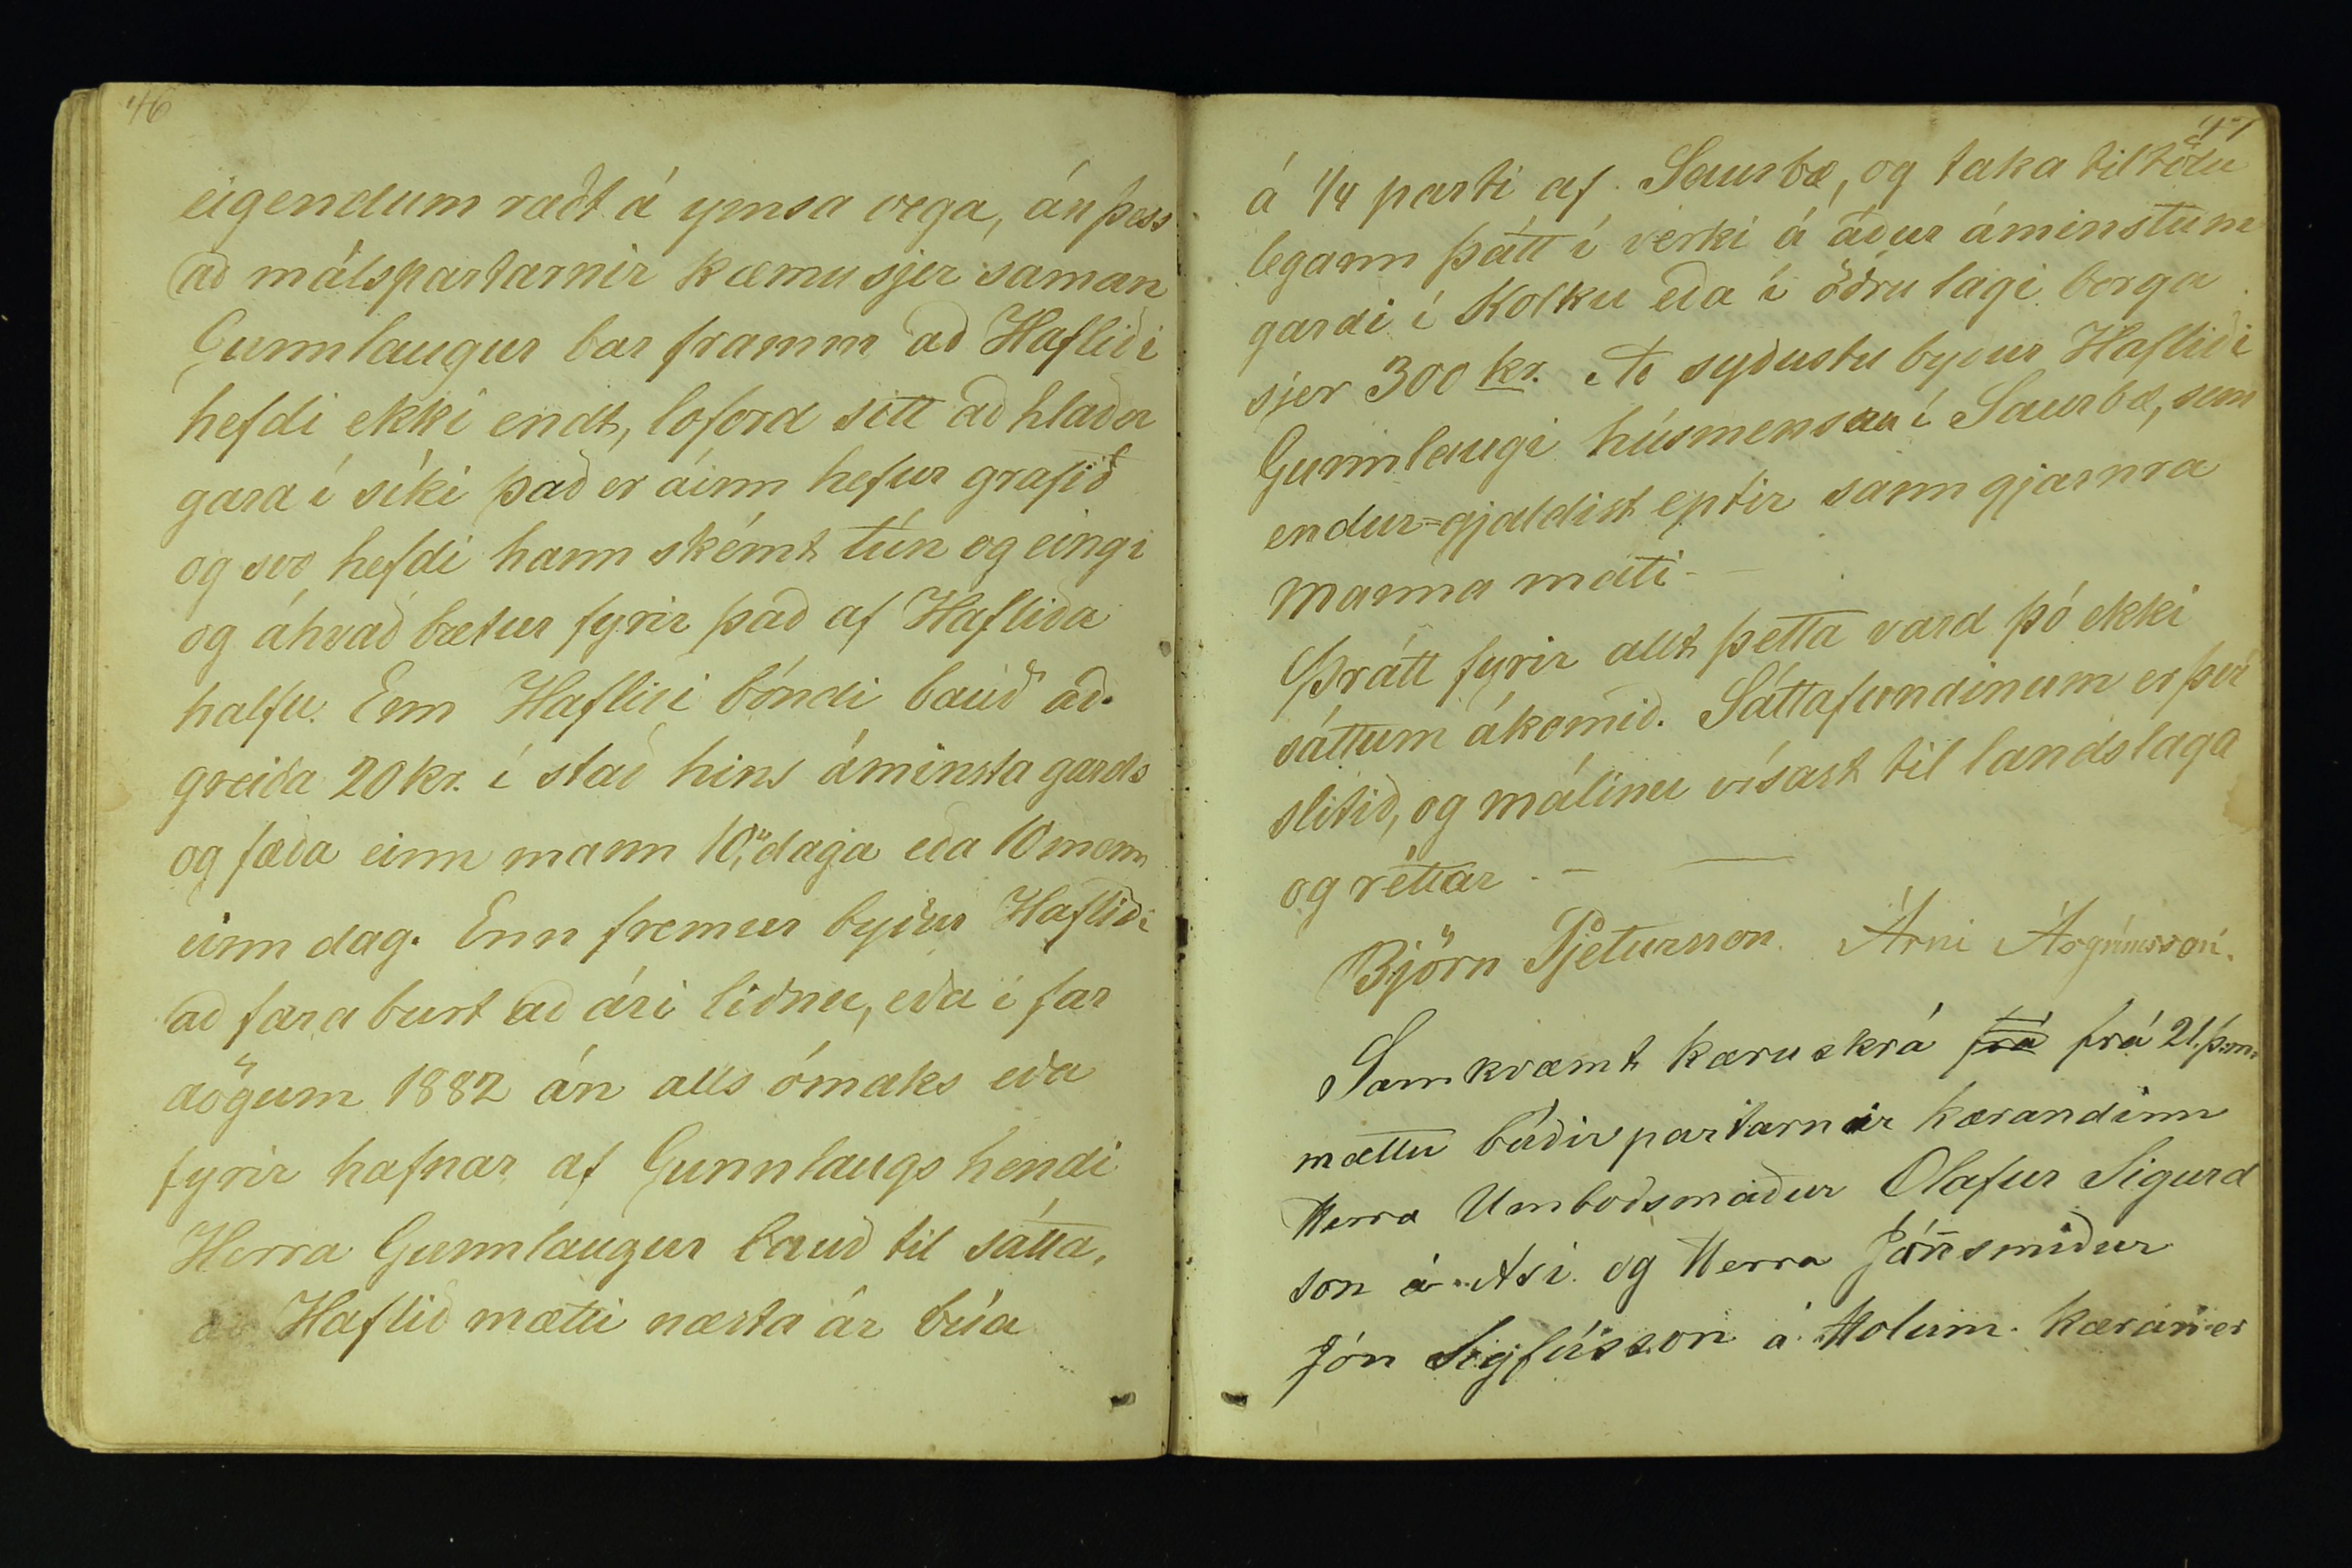 46
eigendum rædt á ymsa vega, án þess
að málspartarnir kæmu sjer saman
Gunnlaugur bar framm að Hafliði
hefdi ekki endt, loford sitt að hlaða
gard í síki það er áinn hefur grafið
og svo hefdi hann skémt tún og eingi
og áhvað bætur fyrir það af Hafliða
halfu. Enn Hafliði bóndi bauð að
greiða 20 kr. í stað hins áminsta gards
og fæða einn mann 10 daga eða 10 menn
einn dag. Enn fremur byður Hafliði
að fara burt að ári liðnu, eða í far
dögum 1882 án alls ómaks eða
fyrir hafnar af Gunnlaugs hendi
Herra Gunnlaugur bauð til sátta,
að Haflið mætti næsta ár búa
47
á 1/4 parti af Saurbæ, og taka tiltölu
legann þátt í verki á áður áminstum
gardi í Kolku eða í öðru lagi borga
sjer 300 kr. Að syðustu byður Hafliði
Gunnlaugi húsmensku í Saurbæ, sem
endur=gjaldist eptir sanngjarnra
manna máti -
Þrátt fyrir allt þetta vard þó ekki
sáttum ákomið. Sáttafundinum er því
slitið, og málinu vísast til landslaga
og réttar. -
Björn Pjetursson Árni Ásgrímsson.
Samkvæmt kæruskrá frá frá 21. þ.m.
mættu báðir partarnir kærandinn
Herra Umboðsmaður Olafur Sigurd
son á Ási og Herra Jónsmiður
Jón Sigfússon á Holum. Kæran er